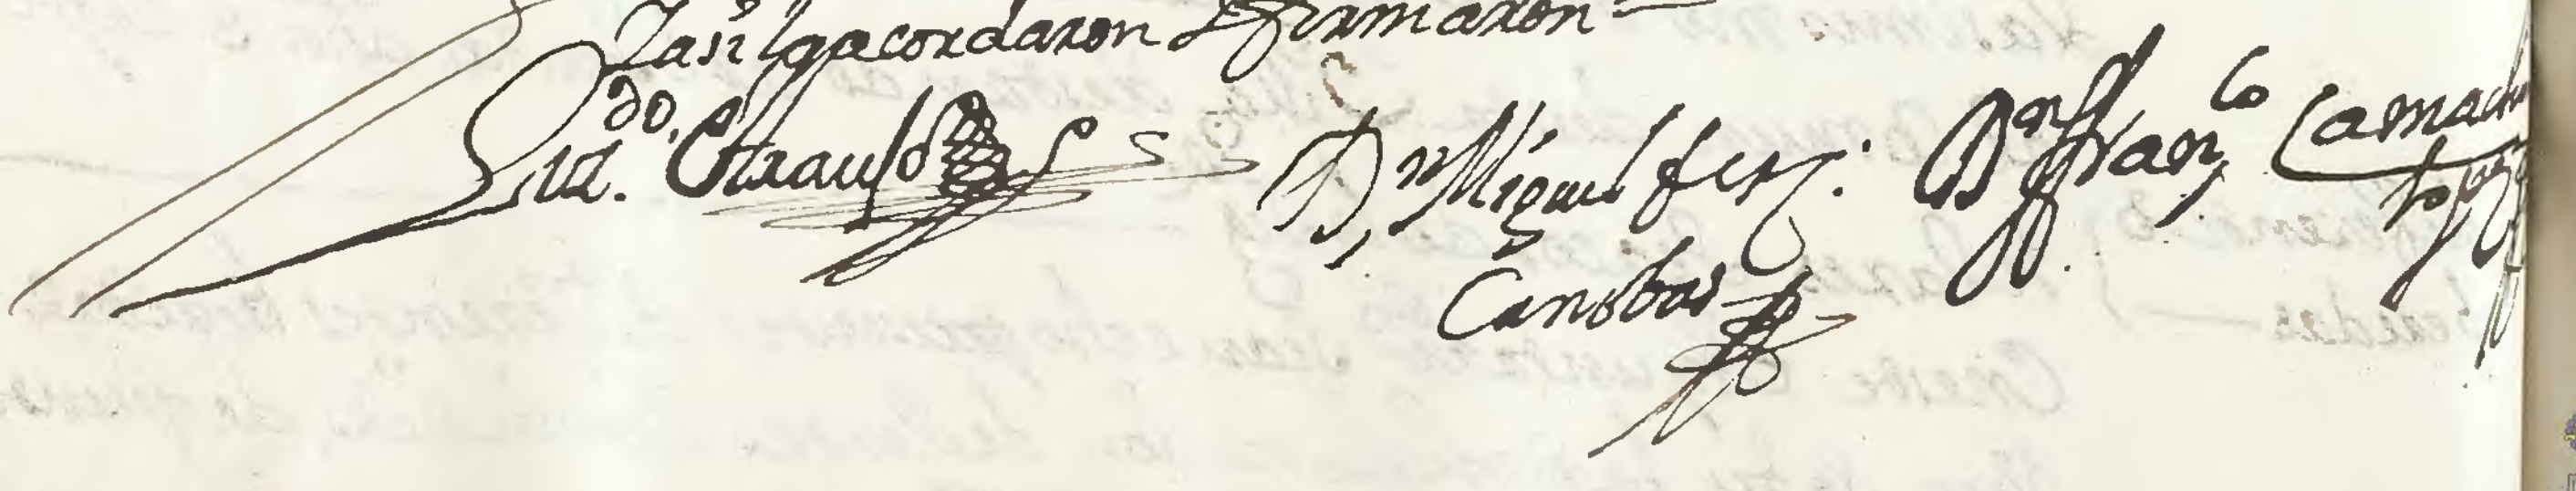 Yasi lo acordaron y firmaron
Lizdo.
Dn Miguel ferz.
Canobas
Dn franco Camacho